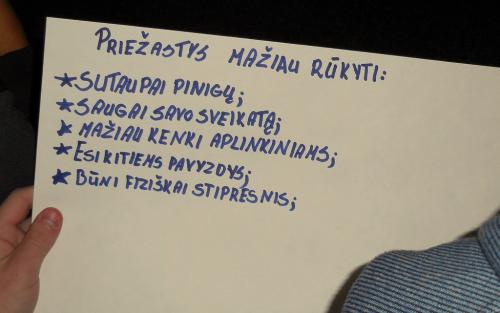 PRIEŽASTYS MAŽIAU RŪKYTI:
★SUTAUPAI PINIGŲ;
★SAUGAI SAVO SVEIKATĄ;
★ MAŽIAU KENKI APLINKINIAMS;
★ESI KITIEMS PAVYZDYS;
★ BŪNI FIZIŠKAI STIPRESNIS;